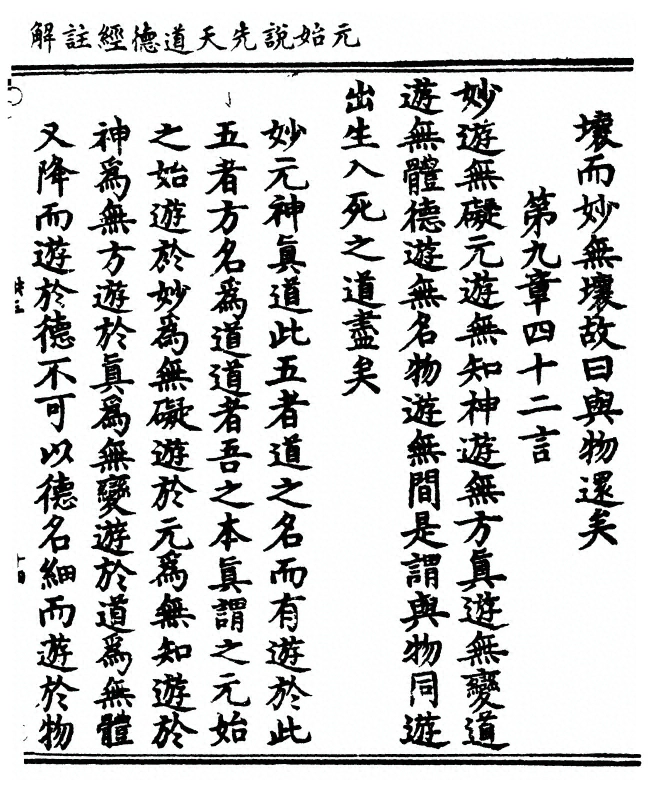 元始說先天道德經註解
壞而妙無壞故曰與物還矣
第九章四十二言
妙遊無礙元遊無知神遊無方眞遊無變道
遊無體德遊無名物遊無間是謂與物同遊
出生入死之道盡矣
妙元神眞道此五者道之名而有遊於此
五者方名爲道道者吾之本眞謂之元始
之始遊於妙爲無礙遊於元爲無知遊於
神爲無方遊於眞爲無變遊於道爲無體
又降而遊於德不可以德名細而遊於物